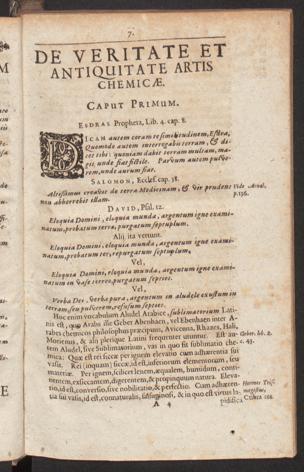 7.
DE VERITATE ET
ANTIQUITATE ARTIS
CHEMICÆ.
CAPUT PRIMUM.
ESDRAS Propheta, Lib. 4. cap. 8.
DICAM autem coram te similitudinem, Esdra,
Quomodo autem interrogabis terram, & di-
cet tibi: quoniam dabit terram multam, ma-
gis, unde fiat fictile. Parvum autem pulve-
rem, unde aurum fiat.
SALOMON, Eccles. cap. 38.
Altissimus creavit de terra Medicinam, & vir prudens
non abhorrebit illam.
Vide Arnal.
p. 196.
DAVID, Psal. 12.
Eloquia Domini, eloquia munda, argentum igne exami-
natum, probatum terra, purgatum septuplum.
Alij ita vertunt.
Eloquia Domini, eloquia munda, argentum igne exami-
natum, probatum ter, repurgatum septuplum.
Vel,
Eloquia Domini, eloquia munda, argentum igne exami-
natum in vase terreo, purgatum septies.
Vel,
Verba Dei, verba pura, argentum in aludele exustum in
terram, seu pulverem, refusum septies.
Huc enim vocabulum Aludel Arabice, sublimatorium Lati-
nis est, quo Arabs ille Geber Abenhaen, vel Ebenhaen inter A-
rabes chemicos philosophus praecipuus, Avicenna, Rhazes, Hali,
Morienus, & alij plerique Latini frequenter utuntur. Est au-
tem Aludel, sive Sublimatorium, vas in quo fit sublimatio che-
mica: Quæ est rei siccæ per ignem elevatio cum adhærentia sui
vasis. Rei (inquam) siccæ, id est, inferiorum elementorum, seu
materiæ. Per ignem, scilicet lenem, æqualem, humidum, conti-
nentem, exsiccantem, digerentem, & propinquum natura. Eleva-
tio, id est, conversio, sive nobilitatio, & perfectio. Cum adhæren-
tia sui vasis, id est, connaturalis, & in quo est virtus la-
Geber. lib. 2.
c. 43.
Hermes Tris-
megistus,
A 4